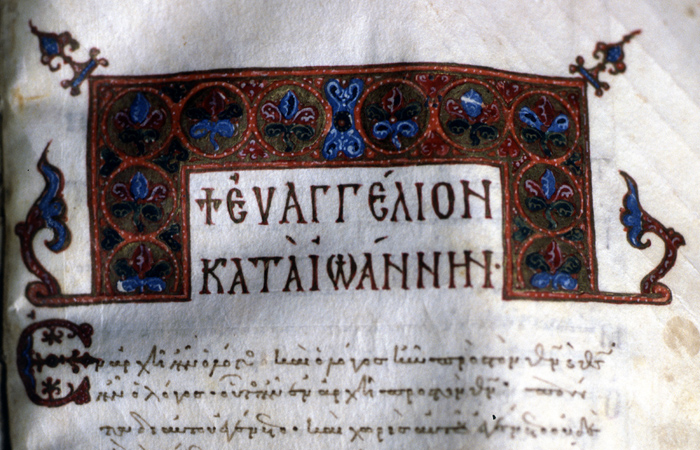 + ἘΥΑΓΓΈΛΙΟΝ
ΚΑΤᾺ ἸΩΆΝΝΗΝ·
Ἐν ἀρχῆ ἦν ὁ λόγος καὶ ὁ λόγος ἦν πρὸς τὸν θν
ἦν ὁ λόγος· οὗτος ἦν ἐν ἀρχῆ πρὸς τὸν θν· πάν
τα δι αὐτοῦ ἐγένετο· καὶ χωρὶς αὐτοῦ ἐγένετο οὐδὲ